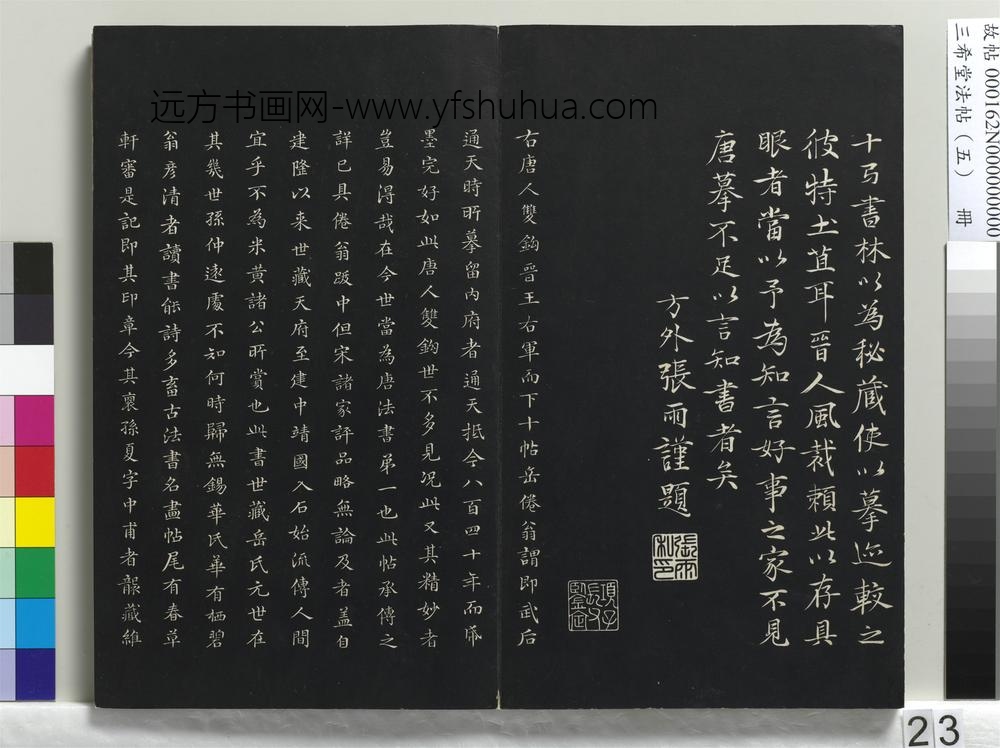 十弓書林以為秘藏使以摹迹較之
彼特土苴耳晉人風裁賴此以存具
眼者當以予為知言好事之家不見
唐摹不足以言知書者矣
方外張雨謹題
張雨私印
項子長父鑒定
右唐人雙鈎晉王右軍而下十帖岳倦翁謂即武后
通天時所摹留內府者通天抵今八百四十年而紙
墨完好如此唐人雙鈎世不多見况此又其精妙者
豈易得哉在今世當為唐法書第一也此帖承傳之
詳已具倦翁跋中但宋諸家評品略無論及者盖自
建隆以来世藏天府至建中靖國入石始流傳人間
宜乎不為米黃諸公所賞也此書世藏岳氏元世在
其幾世孫仲遠處不知何時歸無錫華氏華有栖碧
翁彥清者讀書能詩多畜古法書名畫帖尾有春草
軒審是記即其印章今其裔孫夏字中甫者襲藏維
远方书画网-www.yfshuhua.com
故帖000162N000000000
三希堂法帖（五） 冊
23